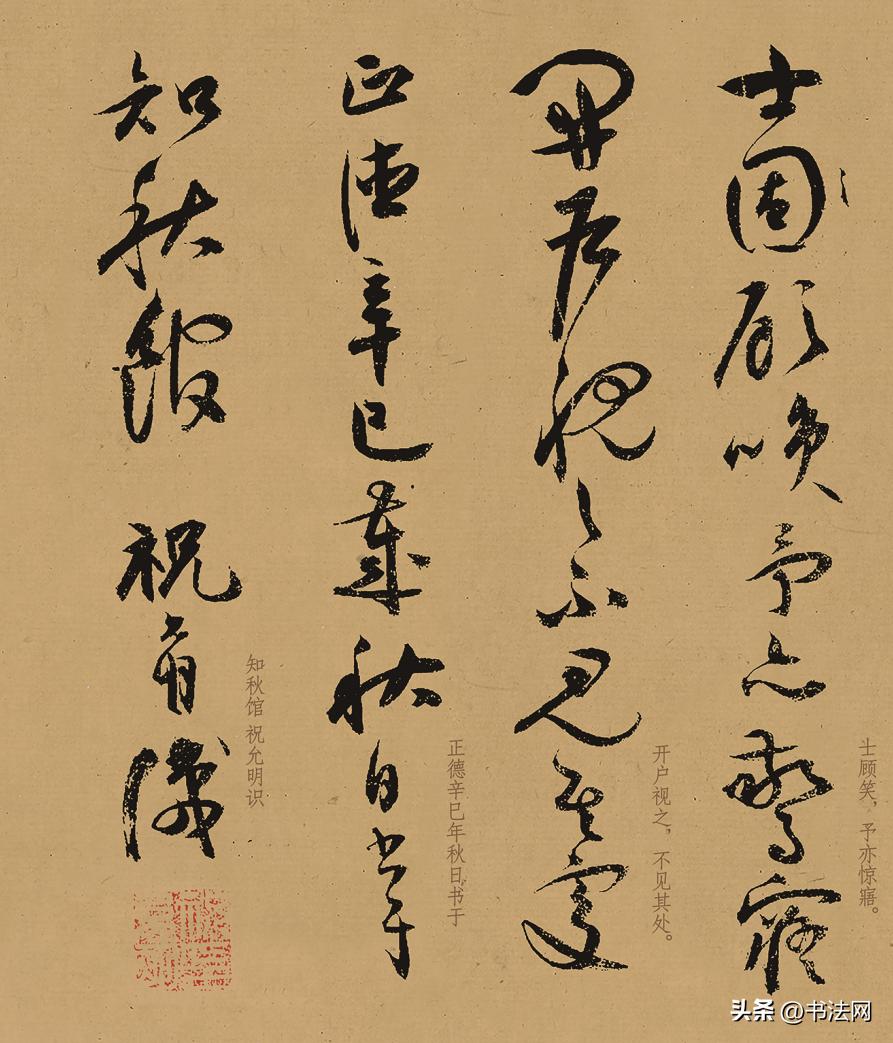 士固顧咲予亦驚寤
士顾笑，予亦惊寤。
開户視之不見其處
开户视之，不见其处。
正德辛巳歲秋日書于
正德辛巳年秋日书于
知秋館 祝允明識
知秋馆 祝允明识
头条 @书法网